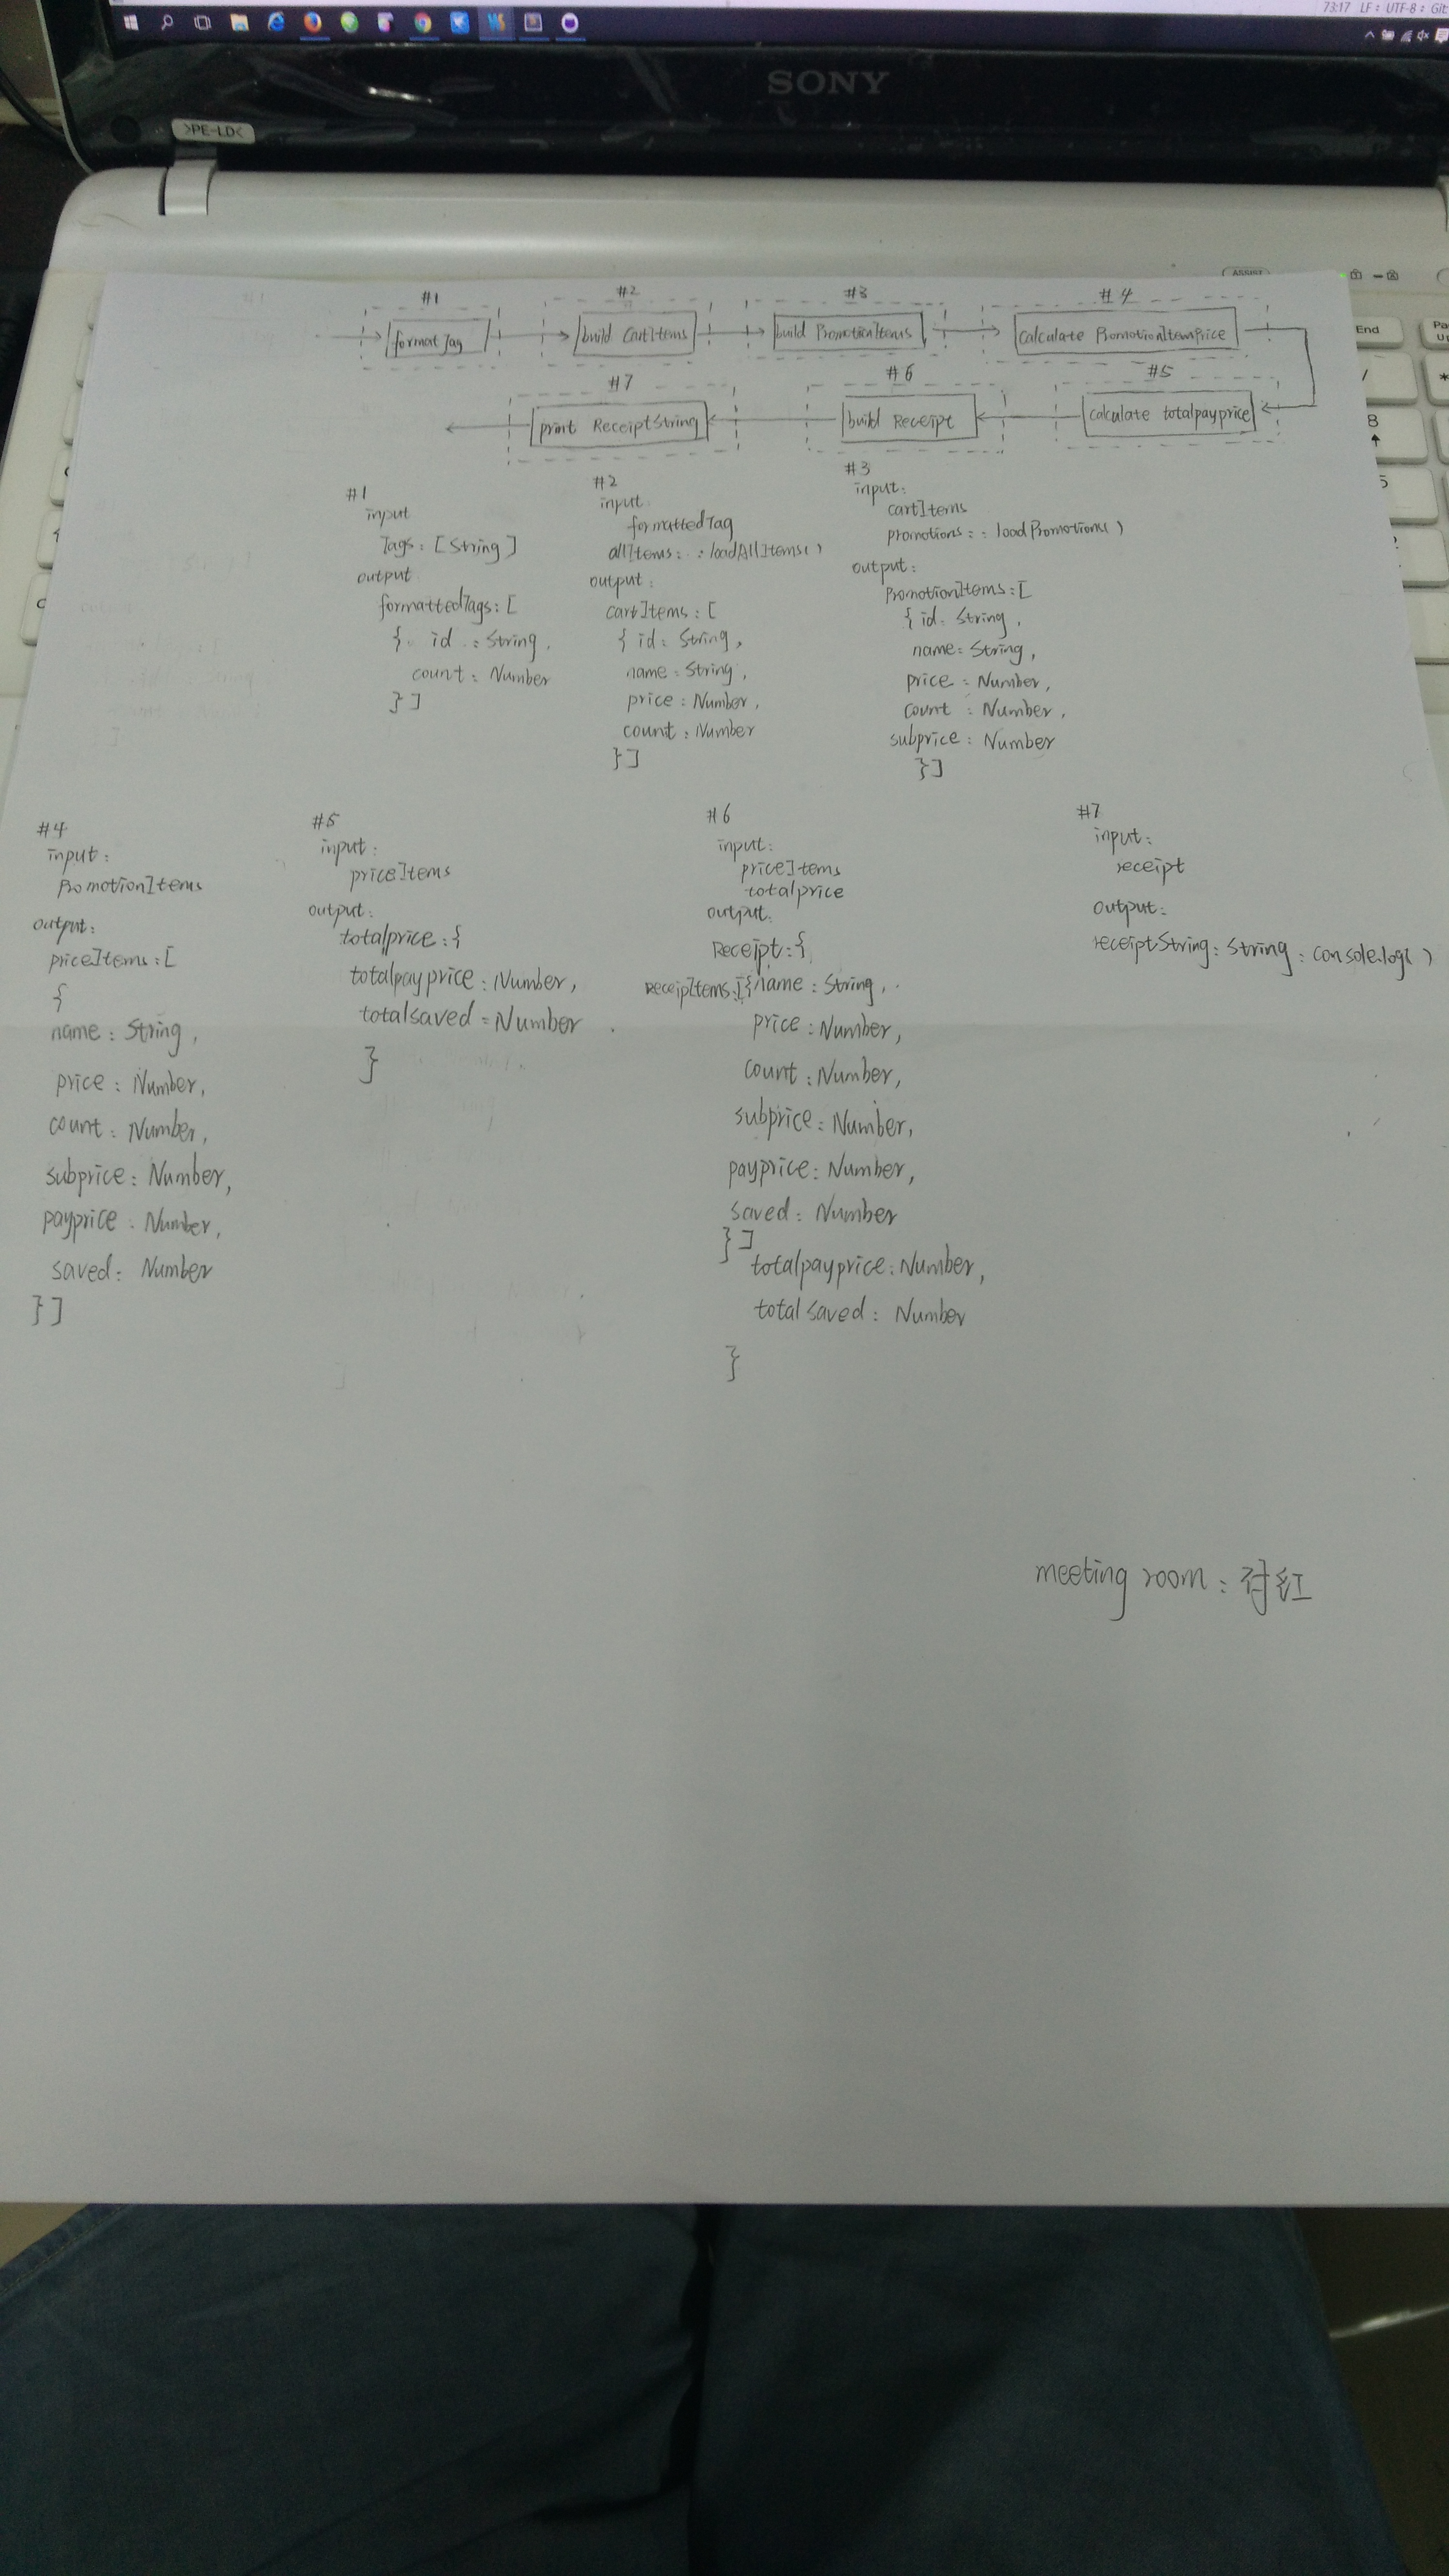 73:17 LF: UTF-8: Git:
SONY
>PE-LD<
ASSIST
End
8
5
#1
#2
#3
#4
format Tag
build CartItems
build PromotionItems
calculate PromotionItemPrice
#7
#6
#5
print ReceiptString
build Receipt
calculate totalpayprice
#1
input
Tags: [String]
output
formattedTags: [
{ id : String,
count: Number
}]
#2
input
formattedTag
allItems: : loadAllItems()
output:
cartItems: [
{ id: String,
name: String,
price: Number,
count: Number
}]
#3
input:
cartItems
promotions: : loadPromotions()
output:
PromotionItems: [
{ id: String,
name: String,
price: Number,
count: Number,
subprice: Number
}]
#4
input:
PromotionItems
output:
priceItems: [
{
name: String,
price: Number,
count: Number,
subprice: Number,
payprice: Number,
saved: Number
}]
#5
input:
priceItems
output:
totalprice: {
totalpayprice: Number,
totalsaved: Number
}
#6
input:
priceItems
totalprice
output:
Receipt: {
ReceipItems: [{name: String,
price: Number,
count: Number,
subprice: Number,
payprice: Number,
saved: Number
}]
totalpayprice: Number,
totalsaved: Number
}
#7
input:
receipt
output:
receiptString: String: console.log()
meeting room: 付红